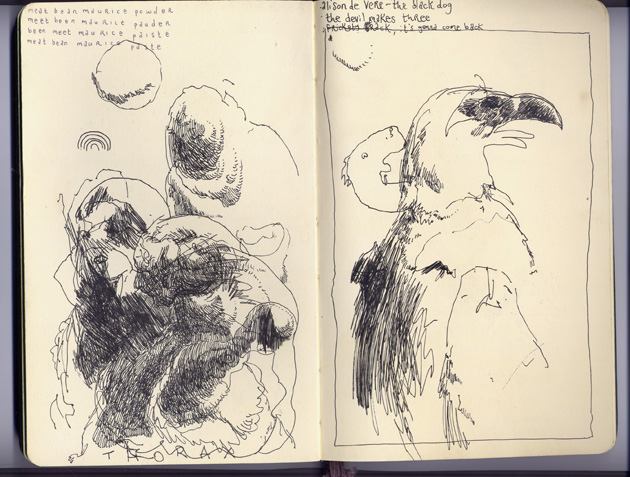 meat bean maurice powder
meet been maurice pauder
been meet maurice paiste
meat bean maurice paste
THORAX
alison de vere - the black dog
- the devil makes three
back, it's gonna come back